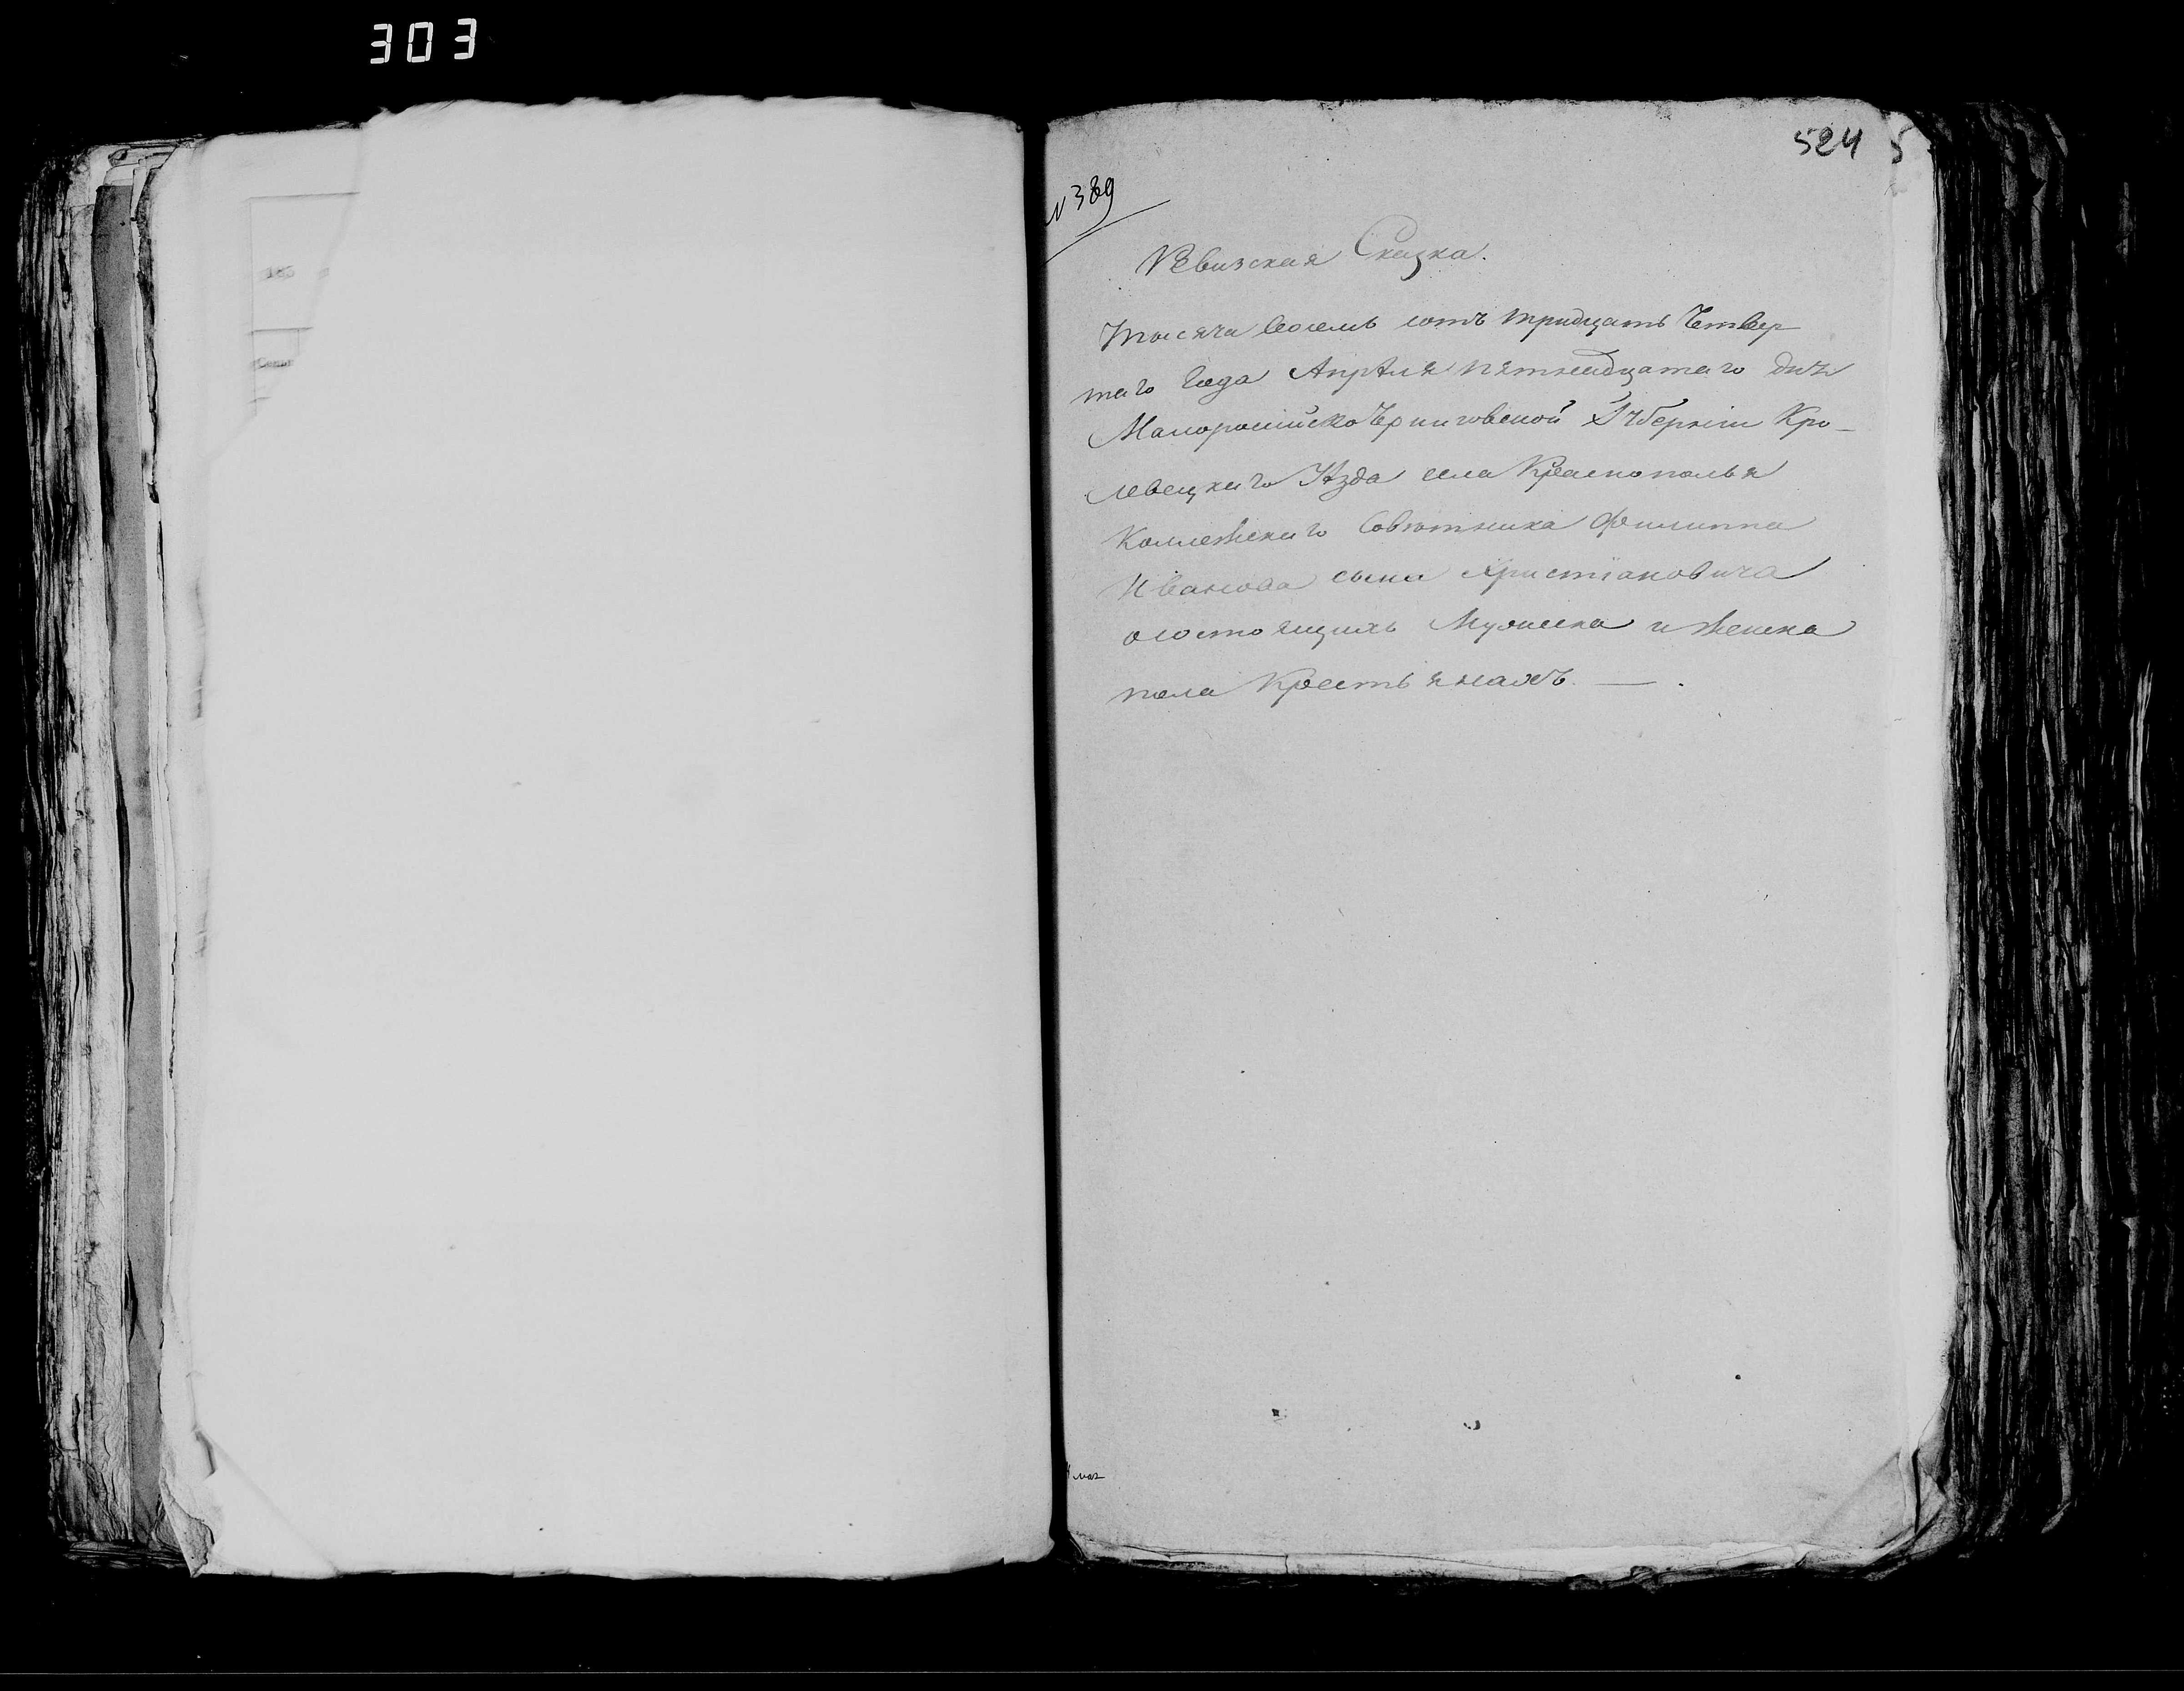 303
524 5
N 389
Ревизская Сказка.
Тысяча восемь сотъ тридцать Четвер
таго Года Апрѣля пятнадцатаго дня
Малоросийско Черниговской Губерніи Кро–
левецкаго Уѣзда села Краснополья
Коллежскаго Совѣтника Филиппа
Иванова сына Христіановича
о состоящихъ Мужеска и женска
пола Крестьянахъ — .